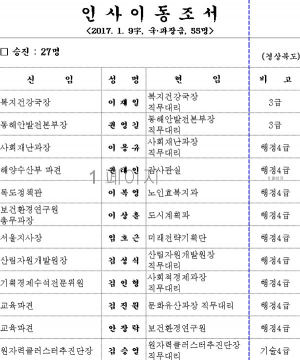 인 사 이 동 조 서
<2017. 1. 9字, 국·과장급, 55명>
□ 승진 : 27명
(경상북도)
신 임 성 명 현 임 비 고
복지건강국장 이 재 일 복지건강국장 직무대리 3급
동해안발전본부장 권 영 길 동해안발전본부장 직무대리 3급
사회재난과장 이 동 규 사회재난과장 직무대리 행정4급
해양수산부 파견 권 태 인 감사관실 행정4급
독도정책관 이 복 영 노인효복지과 행정4급
보건환경연구원 총무과장 이 상 훈 도시계획과 행정4급
서울지사장 임 호 근 미래전략기획단 행정4급
산림자원개발원장 김 성 식 산림자원개발원장 직무대리 행정4급
기획경제수석전문위원 김 인 형 사회적경제과장 직무대리 행정4급
교육파견 김 진 원 문화유산과장 직무대리 행정4급
교육파견 안 장 락 보건환경연구원 행정4급
원자력클러스터추진단장 김 승 열 원자력클러스터추진단장 직무대리 기술4급
1 페이지